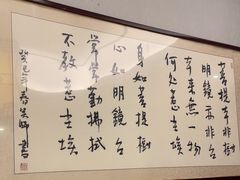 菩提本非樹
明鏡亦非台
本来無一物
何处惹尘埃
身如菩提樹
心如明鏡台
常常勤拂拭
不教惹尘埃
癸巳年春書